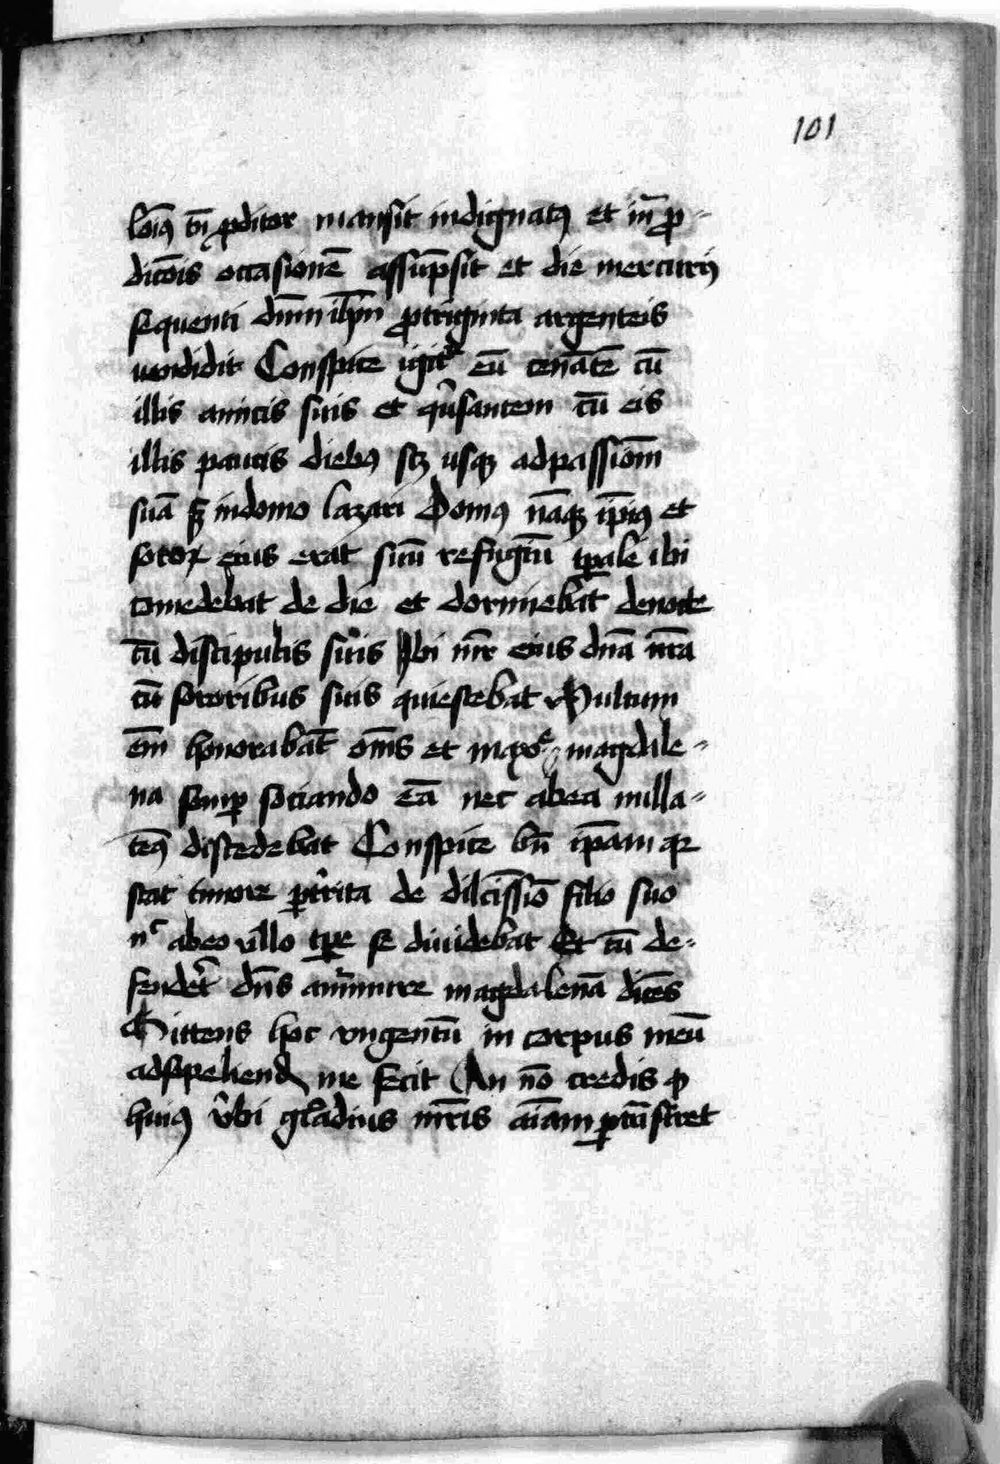 101
loꝰ tn̄ ꝓditor mansit indignatꝰ et in̄ ꝓ-
dic̄ois occasionē assūpsit et die mercurij
sequenti dn̄m ihm̄ ꝓ triginta argenteis
uendidit Conspice igit᷑ eū cenātē cū
illis amicis suis et ꝯ̄uersantem cū eis
illis paucis diebꝰ scꝫ usqꝫ ad passiōm
suā in domo lazari Domꝰ nāqꝫ ip̄iꝰ et
soroꝝ eius erat suū refugiū ꝑale ibi
comedebat de die et dormiebat de nocte
cū discipulis suis Ibi mr̄ eius dn̄a nr̄a
cū sororibus suis quiescebat Multum
em̄ honorabāt om̄s et maxᵉ magdale-
na semꝑ sociando eā nec ab ea nulla-
tenꝰ discedebat Conspice bn̄ ip̄am
stat timore ꝑt̄rita de dilcissīo filio suo
nᶜ ab eo ullo tꝑe se diuidebat Et cū de-
fendet̄ dn̄s a magdalenā dicēs
Mittens hoc vngentū in corpus meū
ad sepeliend me fecit An nō credis ꝙ
huiꝰ v̄bi gladius mr̄is aīam ꝑtn̄siret